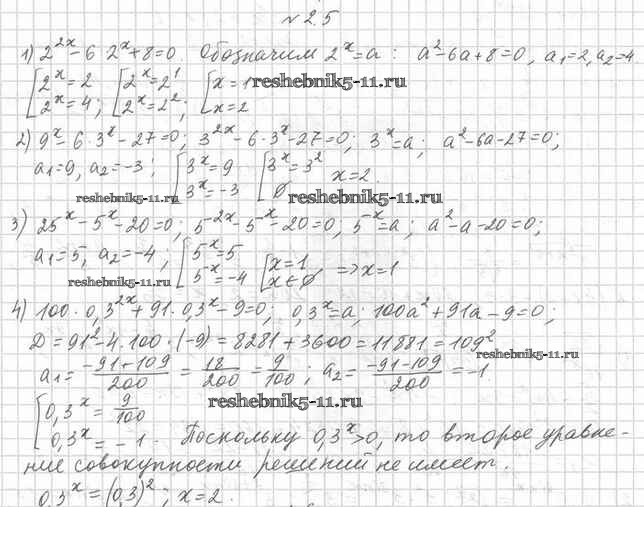 №2.5
1) 2^{2x} - 6 2^x + 8 = 0. Обозначим 2^x = a : a^2 - 6a + 8 = 0, a_1 = 2, a_2 = 4
[2^x = 2 [2^x = 2^1 [x = 1
2^x = 4; 2^x = 2^2; x = 2
reshebnik5-11.ru
2) 9^x - 6·3^x - 27 = 0; 3^{2x} - 6·3^x - 27 = 0; 3^x = a; a^2 - 6a - 27 = 0;
a_1 = 9, a_2 = -3; [3^x = 9 [3^x = 3^2 x = 2.
3^x = -3 ∅
reshebnik5-11.ru reshebnik5-11.ru
3) 25^x - 5^x - 20 = 0; 5^{-2x} - 5^{-x} - 20 = 0, 5^{-x} = a; a^2 - a - 20 = 0;
a_1 = 5, a_2 = -4; [5^x = 5 [x = 1 => x = 1
5^x = -4 x ∈ ∅
reshebnik5-11.ru
4) 100·0,3^{2x} + 91·0,3^x - 9 = 0; 0,3^x = a; 100a^2 + 91a - 9 = 0;
D = 91^2 - 4·100·(-9) = 8281 + 3600 = 11881 = 109^2
reshebnik5-11.ru
a_1 = \frac{-91+109}{200} = \frac{18}{200} = \frac{9}{100}; a_2 = \frac{-91-109}{200} = -1
[0,3^x = \frac{9}{100}
reshebnik5-11.ru
0,3^x = -1. Поскольку 0,3^x > 0, то второе уравне-
ние совокупности решений не имеет.
0,3^x = (0,3)^2; x = 2.